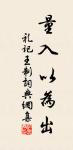 量入以為出
礼记王制词典网集